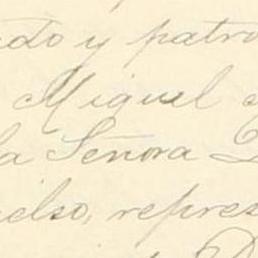 ado y patro
Miguel
la Señora
ielso, repres